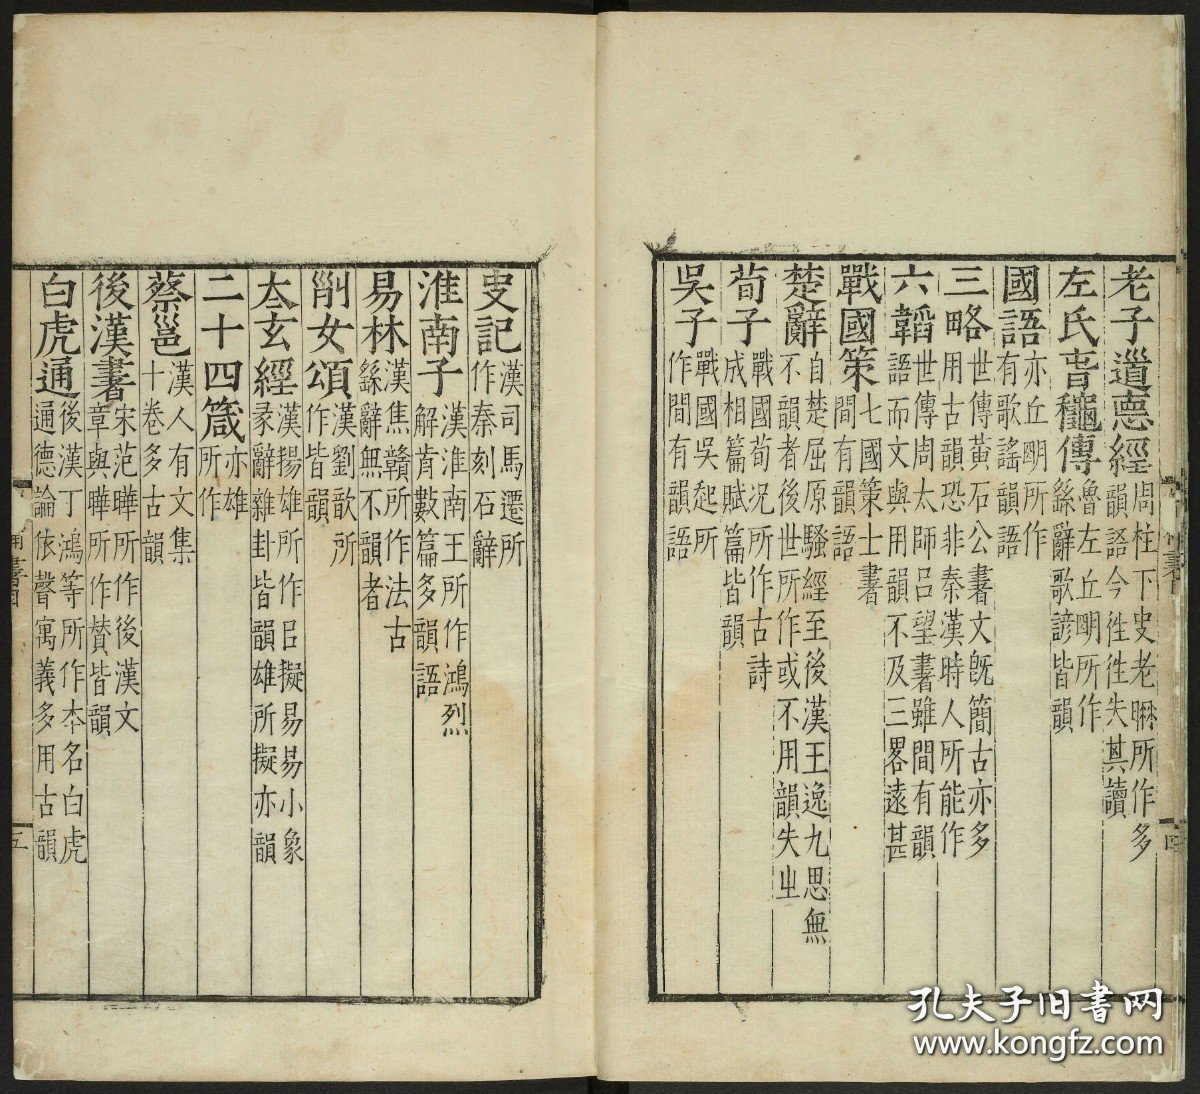 老子道德經
周柱下史老聃所作多
韻語今徃徃失其讀
左氏春秋傳
魯左丘明所作
繇辭歌諺皆韻
國語
亦丘明所作
有歌謠韻語
三略
世傳黃石公書文既簡古亦多
用古韻恐非秦漢時人所能作
六韜
世傳周太師呂望書雖間有韻
語而文與用韻不及三畧遠甚
戰國策
七國策士書
間有韻語
楚辭
自楚屈原騷經至後漢王逸九思無
不韻者後世所作或不用韻失㞢
荀子
戰國荀况所作古詩
成相篇賦篇皆韻
吳子
戰國吳起所
作間有韻語
四
史記
漢司馬遷所
作秦刻石辭
淮南子
漢淮南王所作鴻烈
解肯數篇多韻語
易林
漢焦贛所作法古
繇辭無不韻者
列女頌
漢劉歆所
作皆韻
太玄經
漢揚雄所作㠯擬易易小象
彖辭雜卦皆韻雄所擬亦韻
二十四箴
亦雄
所作
蔡邕
漢人有文集
十卷多古韻
後漢書
宋范曄所作後漢文
章與曄所作賛皆韻
白虎通
後漢丁鴻等所作本名白虎
通德論依聲寓義多用古韻
五
孔夫子旧书网
www.kongfz.com